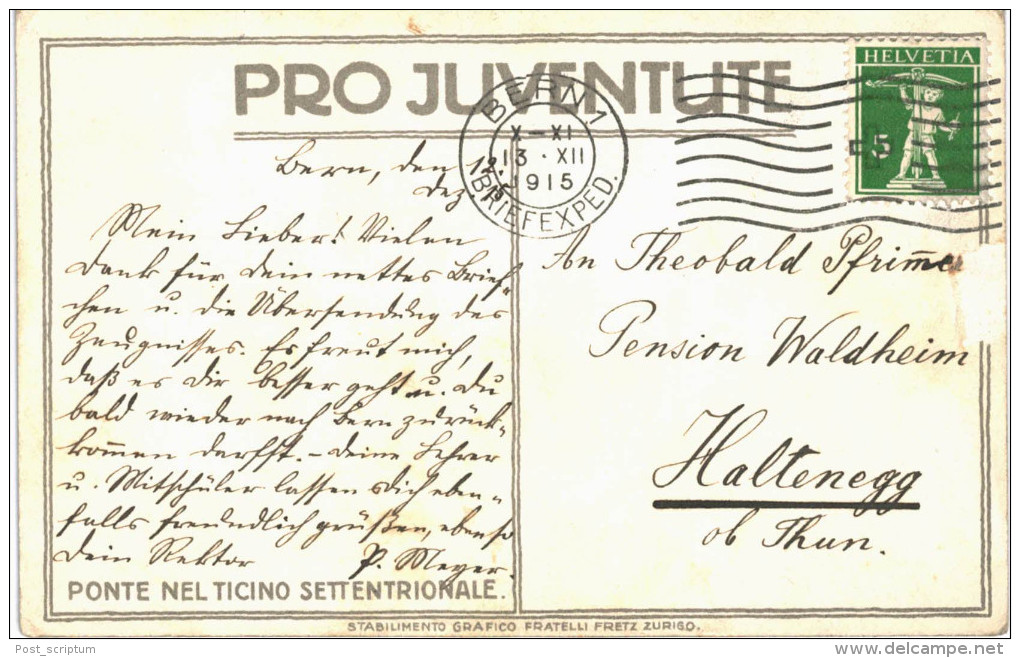 PRO JUVENTUTE
HELVETIA
5
BERN 1
X-XI
13 · XII
1915
BRIEFEXPED.
Bern, den 12.
Dez. 15
Mein Lieber! Vielen
Dank für Dein nettes Brief-
chen u. die Übersendung des
Zeugnisses. Es freut mich,
daß es Dir besser geht u. Du
bald wieder nach Bern zurück-
kom̅en darfst. – Deine Lehrer
u. Mitschüler lassen Dich eben-
falls freundlich grüßen, ebenso
Dein Rektor P. Meyer.
An Theobald Pfrim̅er
Pension Waldheim
Haltenegg
ob Thun.
PONTE NEL TICINO SETTENTRIONALE.
STABILIMENTO GRAFICO FRATELLI FRETZ ZURIGO.
Post_scriptum
delcampe.net